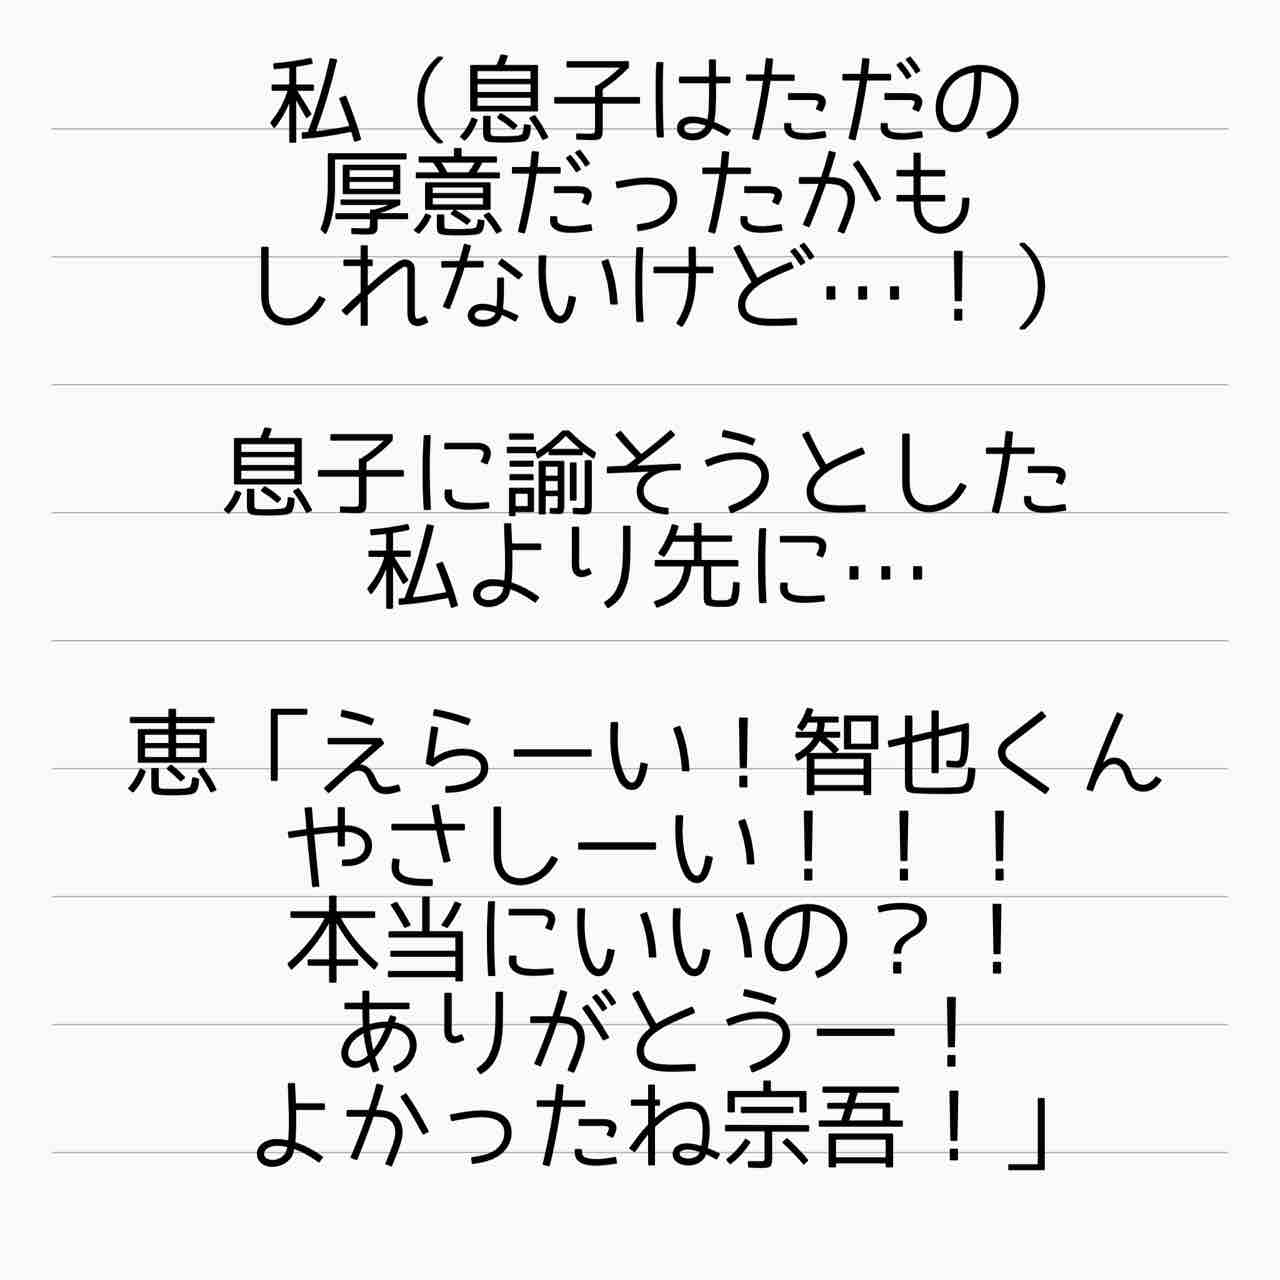 私（息子はただの
厚意だったかも
しれないけど…！）
息子に諭そうとした
私より先に…
恵「えらーい！智也くん
やさしーい！！！
本当にいいの？！
ありがとうー！
よかったね宗吾！」